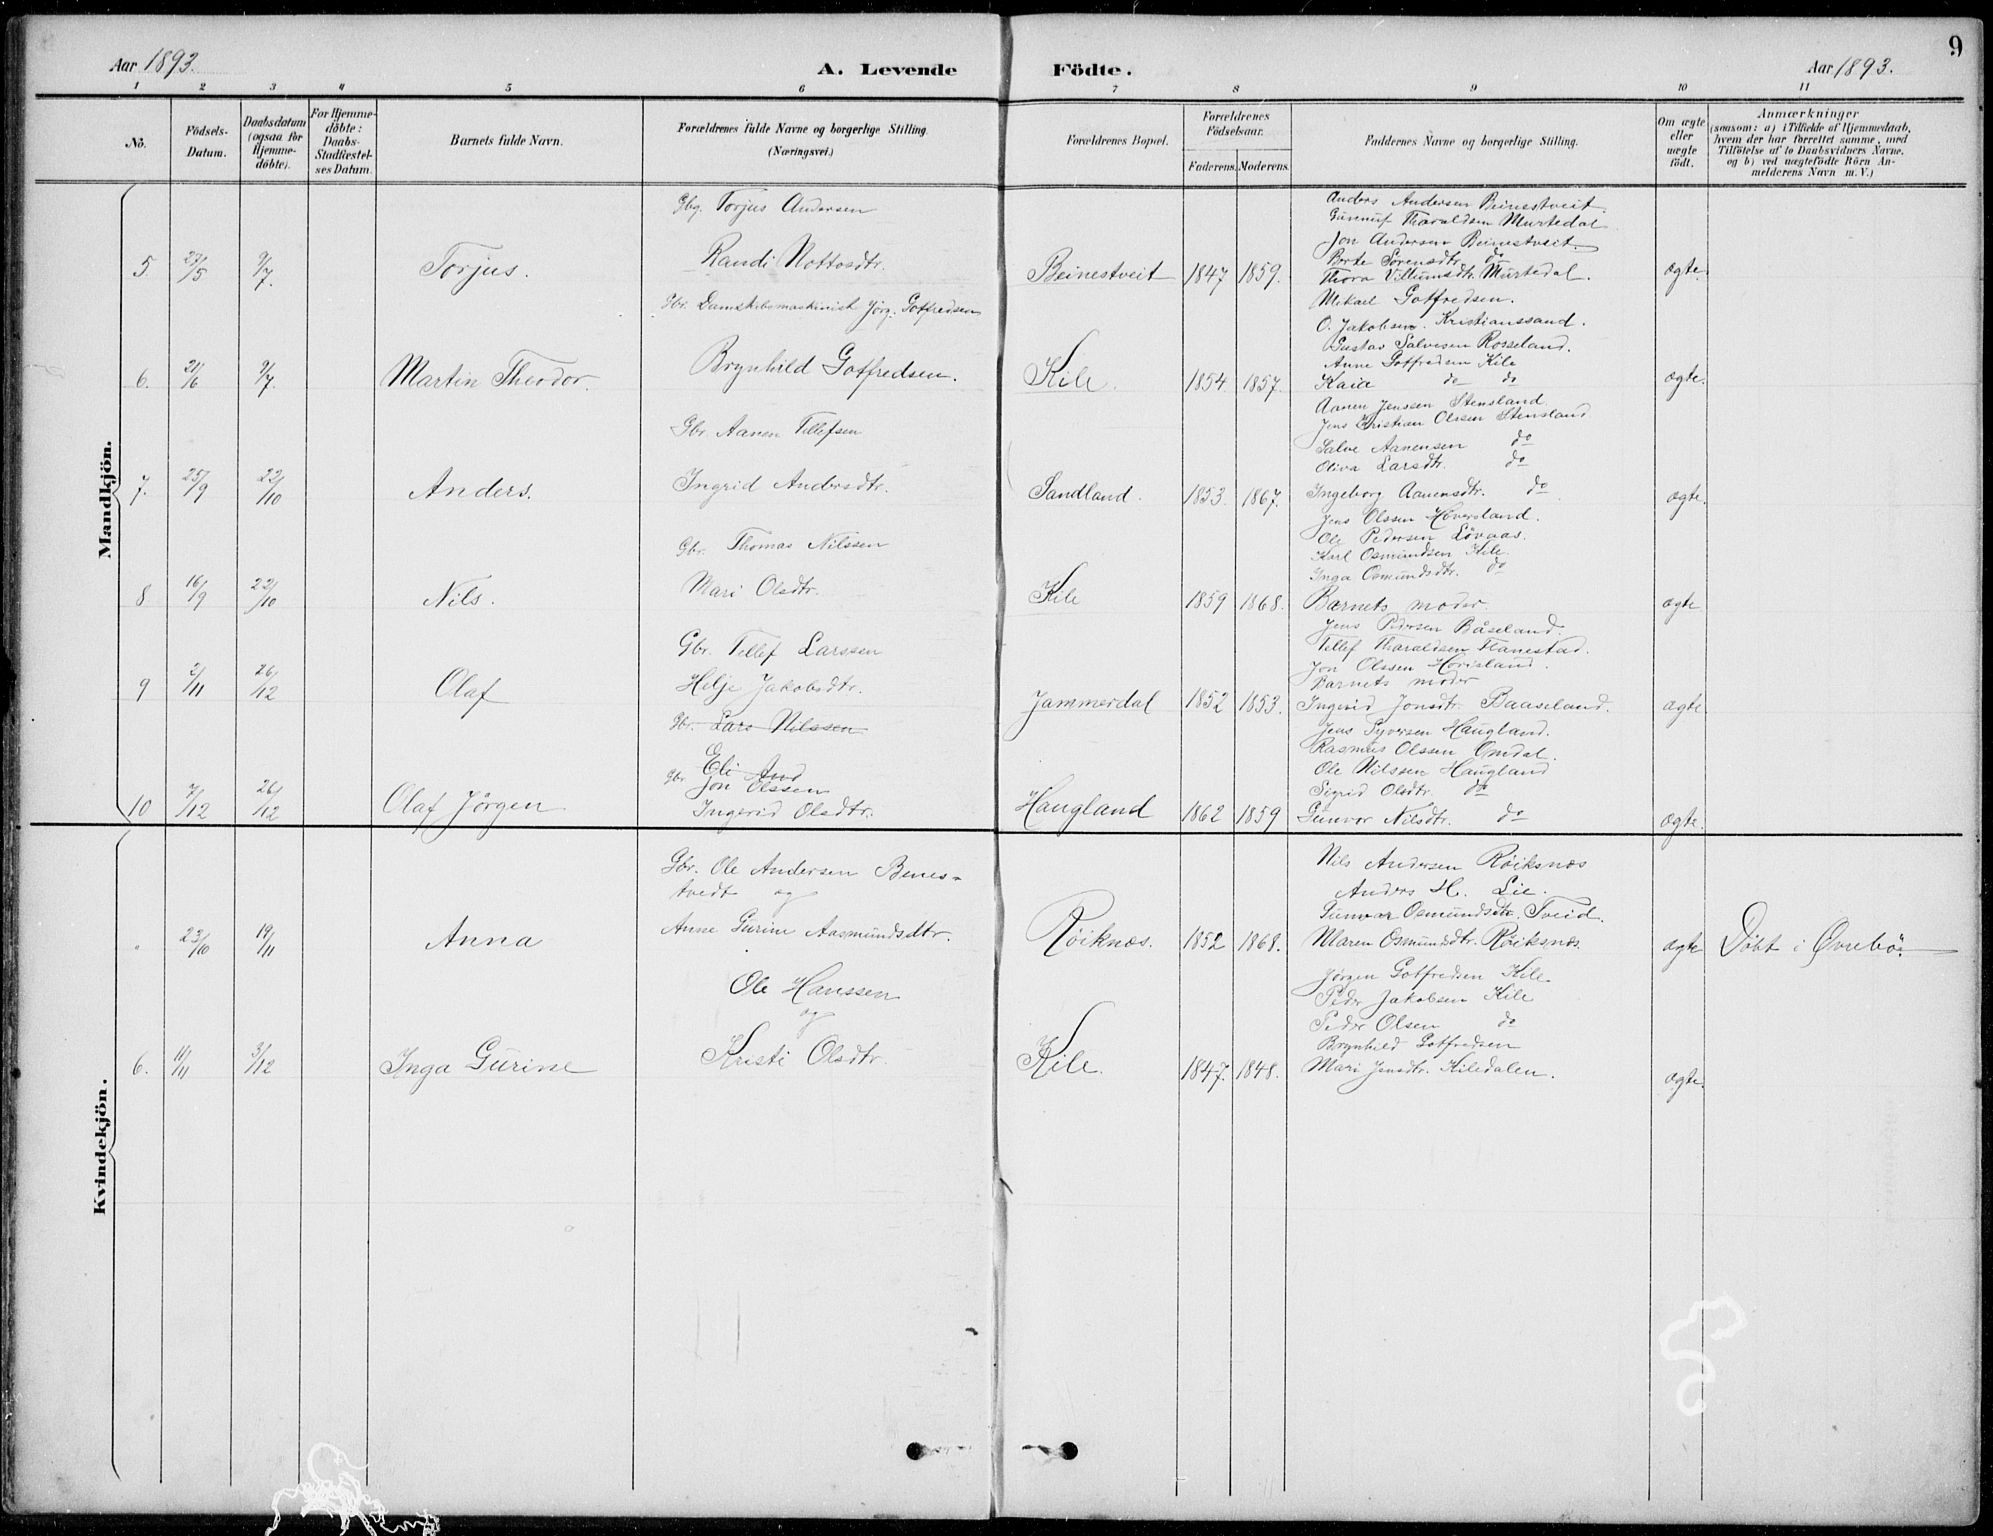 9
Aar 1893.
A. Levende Födte.
Aar 1893.
1 2 3 4 5 6 7 8 9 10 11
No.
Födsels-Datum.
Daabsdatum (ogsaa for Hjemme-döbte).
For Hjemme-döbte: Daabs-Stadfæstel-ses Datum.
Barnets fulde Navn.
Forældrenes fulde Navne og borgerlige Stilling.
(Næringsvei.)
Forældrenes Bopæl.
Forældrenes Födselsaar.
Faderens. Moderens.
Faddernes Navne og borgerlige Stilling.
Om ægte eller uægte födt.
Anmærkninger
(saasom: a) i Tilfælde af Hjemmedaab, hvem der har forrettet samme, med Tilföielse af to Daabsvidners Navne. og b) ved uægtefödte Börn An-melderens Navn m. V.)
Mandkjön.
Gbg. Torjus Andersen
Anders Andersen Beinestveit
Gunnuf Tharaldsen Murtedal
Jon Andersen Beinestveit.
5. 27/5 9/7. Torjus. Randi Nottosdtr. Beinestveit 1847 1859. Berte Sörensdtr. do ægte.
Thora Villumsdtr. Murtedal.
Gbr. Damskibsmaskinist Jörg. Gotfredsen
Mikael Gotfredsen.
O. Jakobsen. Kristianssand.
Gustav Salvesen Rosseland.
Anne Gotfredsen Kile
6. 21/6 9/7 Martin Theodor. Brynhild Gotfredsen. Kile. 1854 1857. Kaia do do ægte.
Gbr. Aanen Tellefsen
Aanen Jenssen Stensland
Jens Kristian Olssen Stensland
Salve Aanensen do
Oliva Larsdtr. do
7. 25/9 22/10 Anders. Ingrid Andersdtr. Sandland. 1853. 1867. Ingeborg Aanensdtr. do ægte.
Gbr. Thomas Nilssen
Jens Olssen Hoversland.
Ole Pedersen Lövaas.
Karl Osmundsen Kile.
Inga Osmundsdtr. do
8 16/9 22/10 Nils. Mari Olsdtr. Kile 1859 1868. Barnets moder. ægte
Gbr. Tellef Larssen
Jens Pedersen Båseland.
Tellef Tharaldsen Flanestad.
Jon Olssen Horisland.
Barnets moder
9 2/11 26/12 Olaf Helje Jakobsdtr. Jammerdal 1852 1853. Ingerid Jonsdtr. Baaseland. ægte
Gbr. Lars Nilssen
Eli And
Jens Syversen Haugland.
Rasmus Olssen Omdal.
Ole Nilssen Haugland
Gbr Jon Olssen
Sigrid Olsdtr. do
10 7/12 26/12 Olaf Jörgen Ingerid Olsdtr. Haugland 1862 1859 Gunvor Nilsdtr. do ægte.
Kvindekjön.
Gbr. Ole Andersen Benes-
tvedt og
Nils Andersen Röiksnæs
Anders H. Lie.
Gunvor Osmundsdtr. Tveid.
" 23/10 19/11 Anna Anne Gurine Aasmundsdtr. Röiknæs. 1852 1868. Maren Osmundsdtr. Röiksnæs. ægte Döbt i Øvrebö.
Ole Hanssen
og
Jörgen Gotfredsen Kile.
Peder Jakobsen Kile
Peder Olsen do
Brynhild Gotfredsen
6. 11/11 3/12 Inga Gurine Kristi Olsdtr. Kile. 1847. 1848. Mari Jensdtr. Kiledalen. ægte.